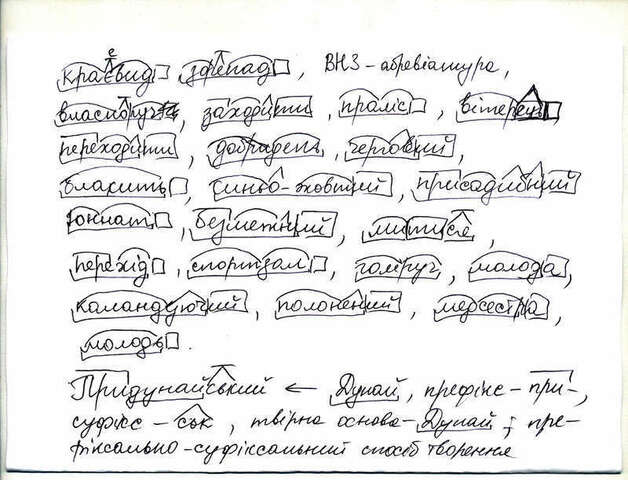 краєвид, зорепад, ВНЗ - абревіатура,
власноруч, заходити, праліс, вітерець
переходити, добрадень, черговий,
блакить, синьо-жовтий, присадибний
юннат, безмежний, митися,
перехід, спортзал, голіруч, молода,
каландуючий, полонений, медсестра,
молодь.
Придунайський ← Дунай, префікс - при-,
суфікс - ськ, твірна основа - Дунай; пре-
фіксально-суфіксальний спосіб творення